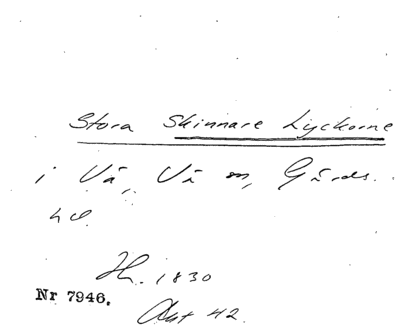 Stora Skinnare Lyckorne
i Vä, Vä sn, Gärds.
hd.
Hn. 1830
Nr 7946.
Akt 42.